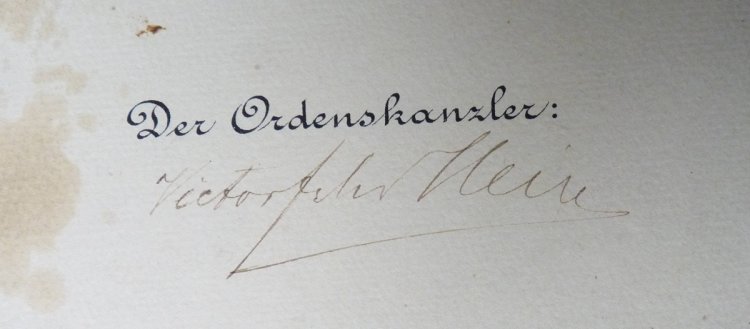 Der Ordenskanzler:
Victor frhr v Hein